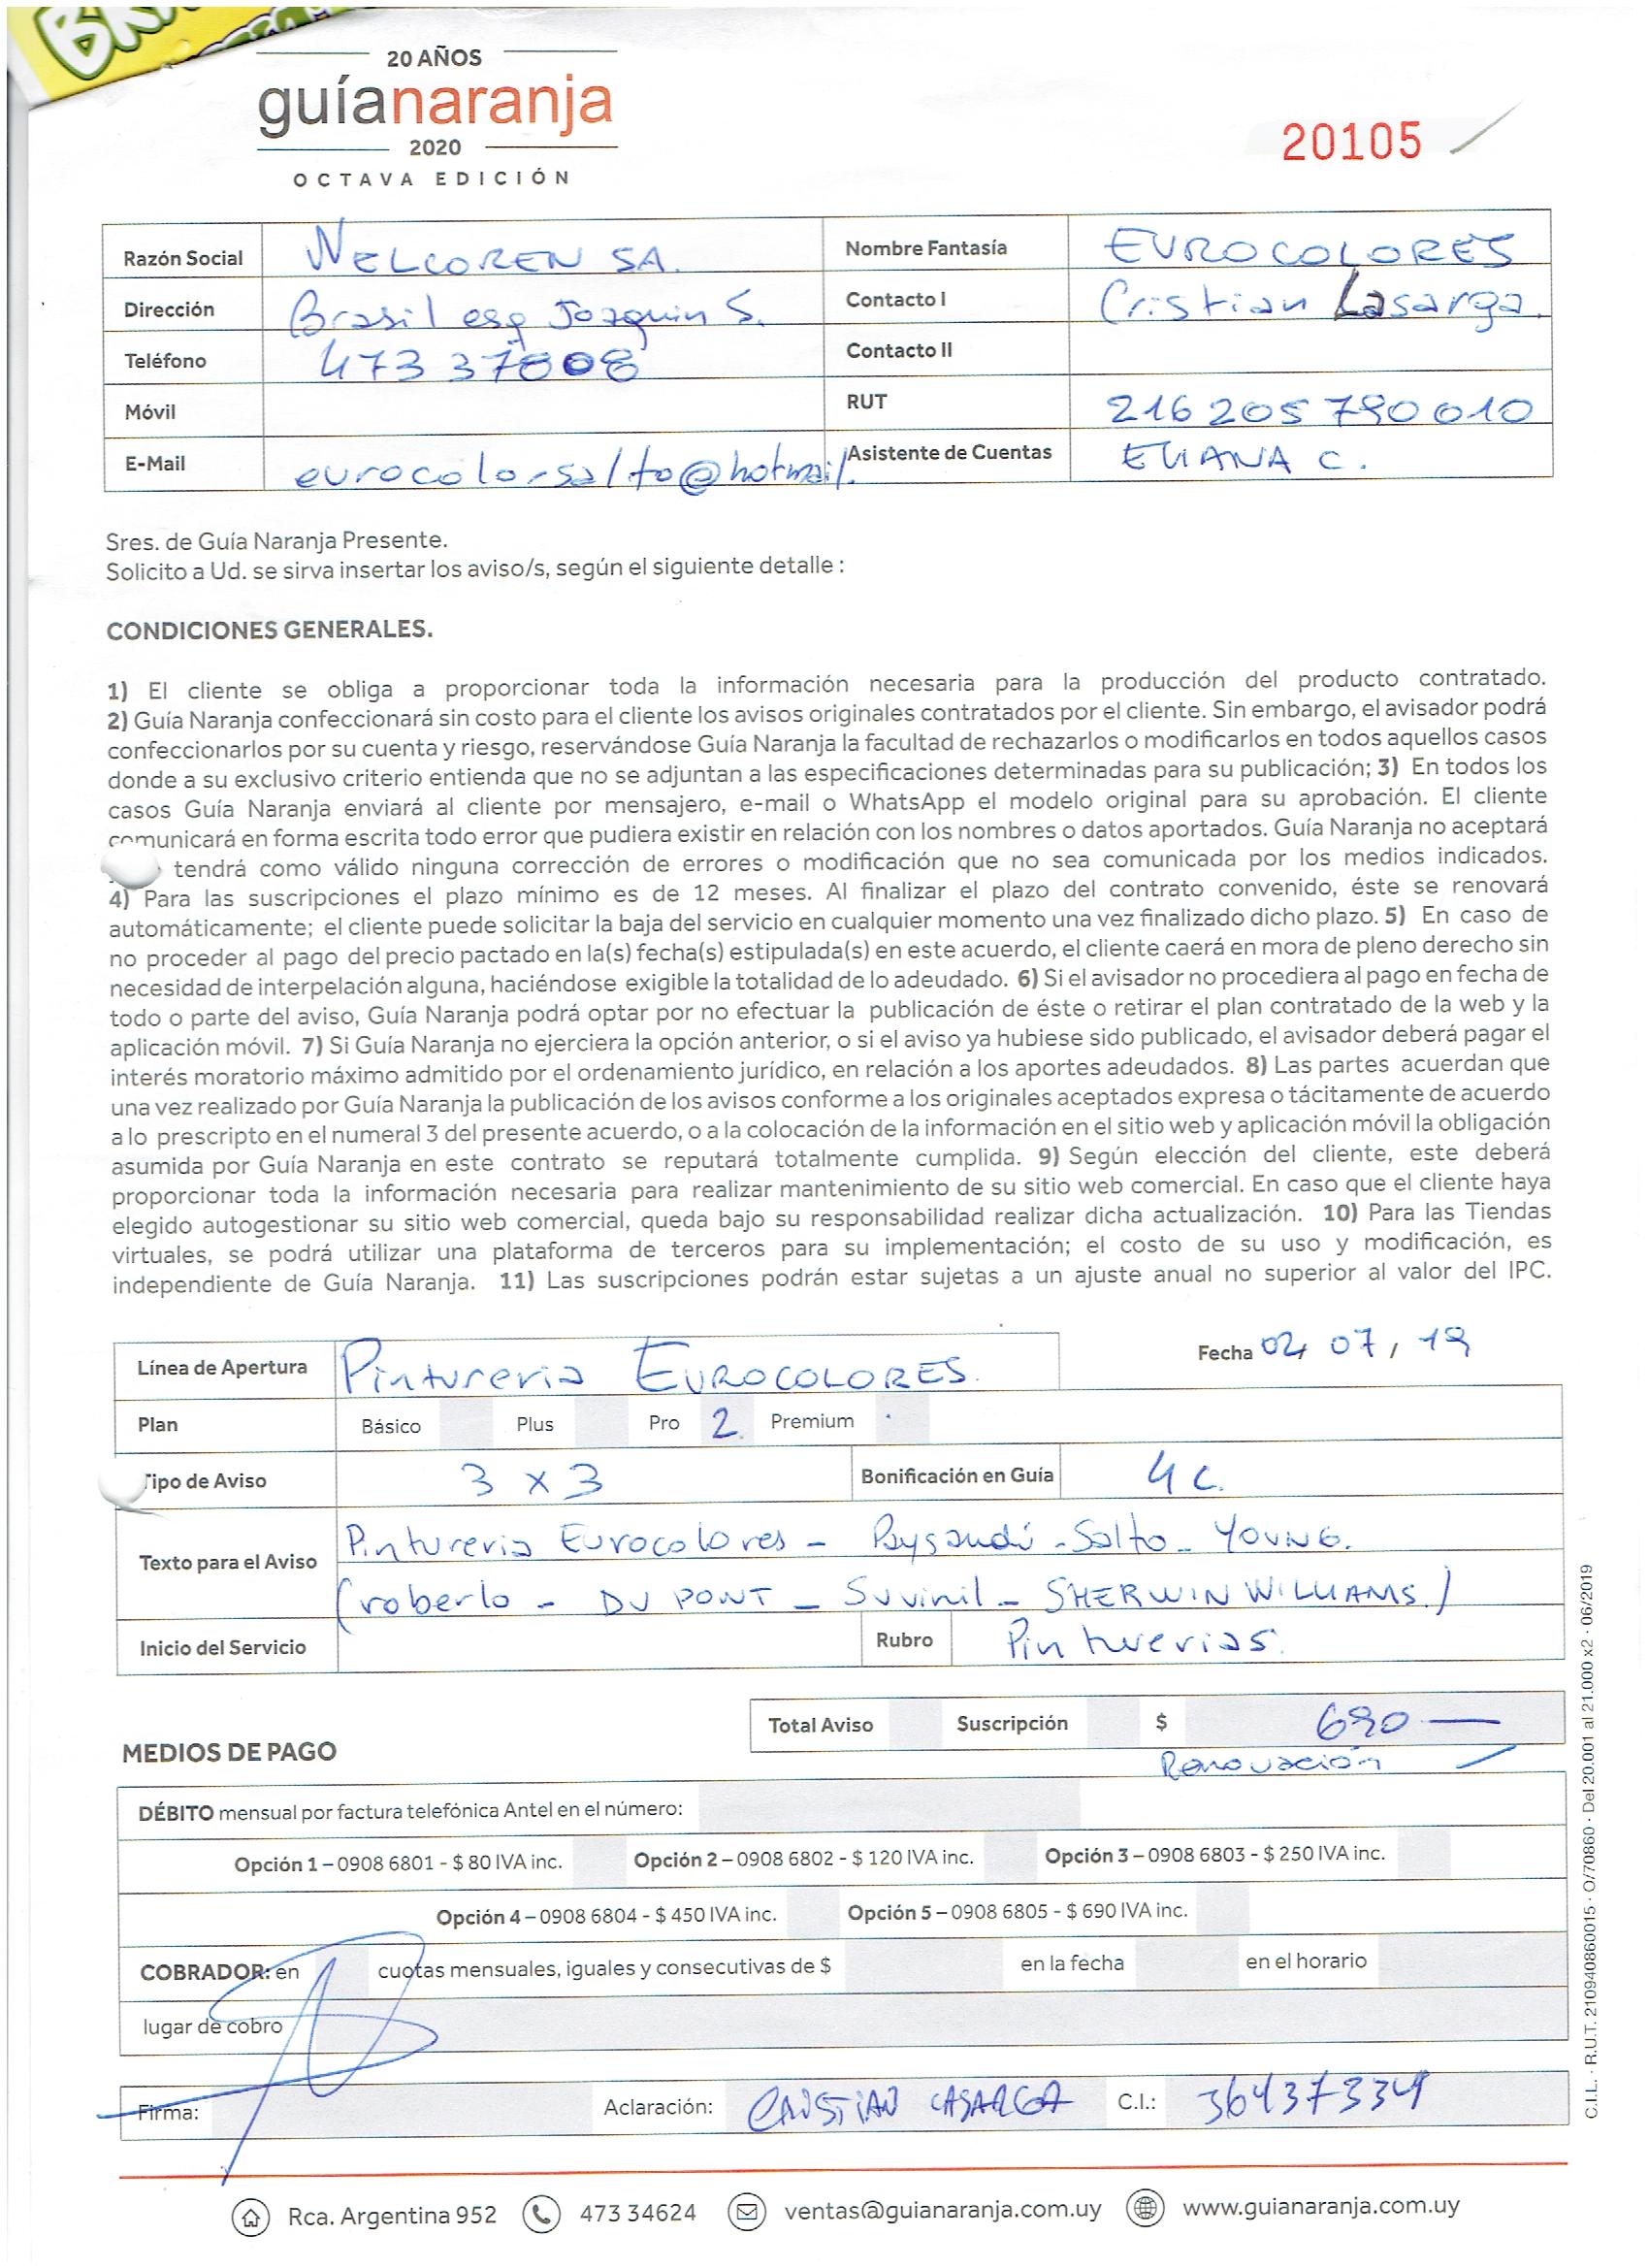 20 AÑOS
guíanaranja
2020
OCTAVA EDICIÓN
20105
Razón Social NELCOREN SA. Nombre Fantasía EUROCOLORES
Dirección Brasil esq Joaquin S. Contacto I Cristian Lasarga.
Teléfono 473 37808 Contacto II
Móvil RUT 216205790010
E-Mail eurocolorsalto@hotmail. Asistente de Cuentas ELIANA C.
Sres. de Guía Naranja Presente.
Solicito a Ud. se sirva insertar los aviso/s, según el siguiente detalle :
CONDICIONES GENERALES.
1) El cliente se obliga a proporcionar toda la información necesaria para la producción del producto contratado.
2) Guía Naranja confeccionará sin costo para el cliente los avisos originales contratados por el cliente. Sin embargo, el avisador podrá
confeccionarlos por su cuenta y riesgo, reservándose Guía Naranja la facultad de rechazarlos o modificarlos en todos aquellos casos
donde a su exclusivo criterio entienda que no se adjuntan a las especificaciones determinadas para su publicación; 3) En todos los
casos Guía Naranja enviará al cliente por mensajero, e-mail o WhatsApp el modelo original para su aprobación. El cliente
comunicará en forma escrita todo error que pudiera existir en relación con los nombres o datos aportados. Guía Naranja no aceptará
tendrá como válido ninguna corrección de errores o modificación que no sea comunicada por los medios indicados.
4) Para las suscripciones el plazo mínimo es de 12 meses. Al finalizar el plazo del contrato convenido, éste se renovará
automáticamente; el cliente puede solicitar la baja del servicio en cualquier momento una vez finalizado dicho plazo. 5) En caso de
no proceder al pago del precio pactado en la(s) fecha(s) estipulada(s) en este acuerdo, el cliente caerá en mora de pleno derecho sin
necesidad de interpelación alguna, haciéndose exigible la totalidad de lo adeudado. 6) Si el avisador no procediera al pago en fecha de
todo o parte del aviso, Guía Naranja podrá optar por no efectuar la publicación de éste o retirar el plan contratado de la web y la
aplicación móvil. 7) Si Guía Naranja no ejerciera la opción anterior, o si el aviso ya hubiese sido publicado, el avisador deberá pagar el
interés moratorio máximo admitido por el ordenamiento jurídico, en relación a los aportes adeudados. 8) Las partes acuerdan que
una vez realizado por Guía Naranja la publicación de los avisos conforme a los originales aceptados expresa o tácitamente de acuerdo
a lo prescripto en el numeral 3 del presente acuerdo, o a la colocación de la información en el sitio web y aplicación móvil la obligación
asumida por Guía Naranja en este contrato se reputará totalmente cumplida. 9) Según elección del cliente, este deberá
proporcionar toda la información necesaria para realizar mantenimiento de su sitio web comercial. En caso que el cliente haya
elegido autogestionar su sitio web comercial, queda bajo su responsabilidad realizar dicha actualización. 10) Para las Tiendas
virtuales, se podrá utilizar una plataforma de terceros para su implementación; el costo de su uso y modificación, es
independiente de Guía Naranja. 11) Las suscripciones podrán estar sujetas a un ajuste anual no superior al valor del IPC.
Línea de Apertura Pintureria EUROCOLORES. Fecha 02, 07, 19
Plan Básico Plus Pro 2. Premium
Tipo de Aviso 3 x 3 Bonificación en Guía 4 c.
Texto para el Aviso Pintureria Eurocolores - Paysandú - Salto - YOUNG.
(roberlo - DU PONT - Suvinil - SHERWIN WILLIAMS.)
Inicio del Servicio Rubro Pinturerias.
Total Aviso Suscripción $ 690 —
Renovación
MEDIOS DE PAGO
DÉBITO mensual por factura telefónica Antel en el número:
Opción 1 – 0908 6801 - $ 80 IVA inc. Opción 2 – 0908 6802 - $ 120 IVA inc. Opción 3 – 0908 6803 - $ 250 IVA inc.
Opción 4 – 0908 6804 - $ 450 IVA inc. Opción 5 – 0908 6805 - $ 690 IVA inc.
COBRADOR: en cuotas mensuales, iguales y consecutivas de $ en la fecha en el horario
lugar de cobro
Firma: Aclaración: CRISTIAN LASARGA C.I.: 36437334
C.I.L. · R.U.T. 210940860015 · O/70860 · Del 20.001 al 21.000 x2 · 06/2019
Rca. Argentina 952 473 34624 ventas@guianaranja.com.uy www.guianaranja.com.uy